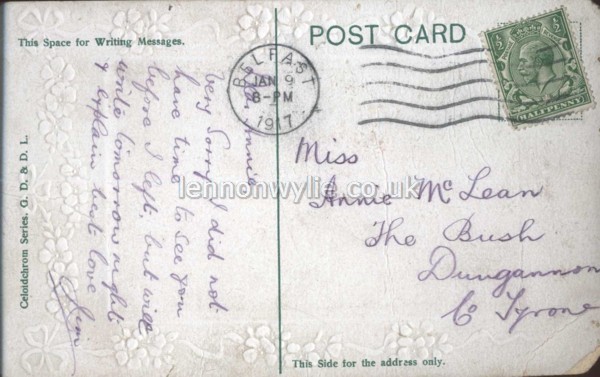 POST CARD
This Space for Writing Messages.
BELFAST
JAN 9
8-PM
1917
HALFPENNY
Dear Annie
very Sorry I did not
have time to see you
before I left, but will
write tomorrow night
& explain best love
Jim
Miss
Annie McLean
The Bush
Dungannon
Co Tyrone
Celoidchrom Series. G. D. & D. L.
This Side for the address only.
lennonwylie.co.uk